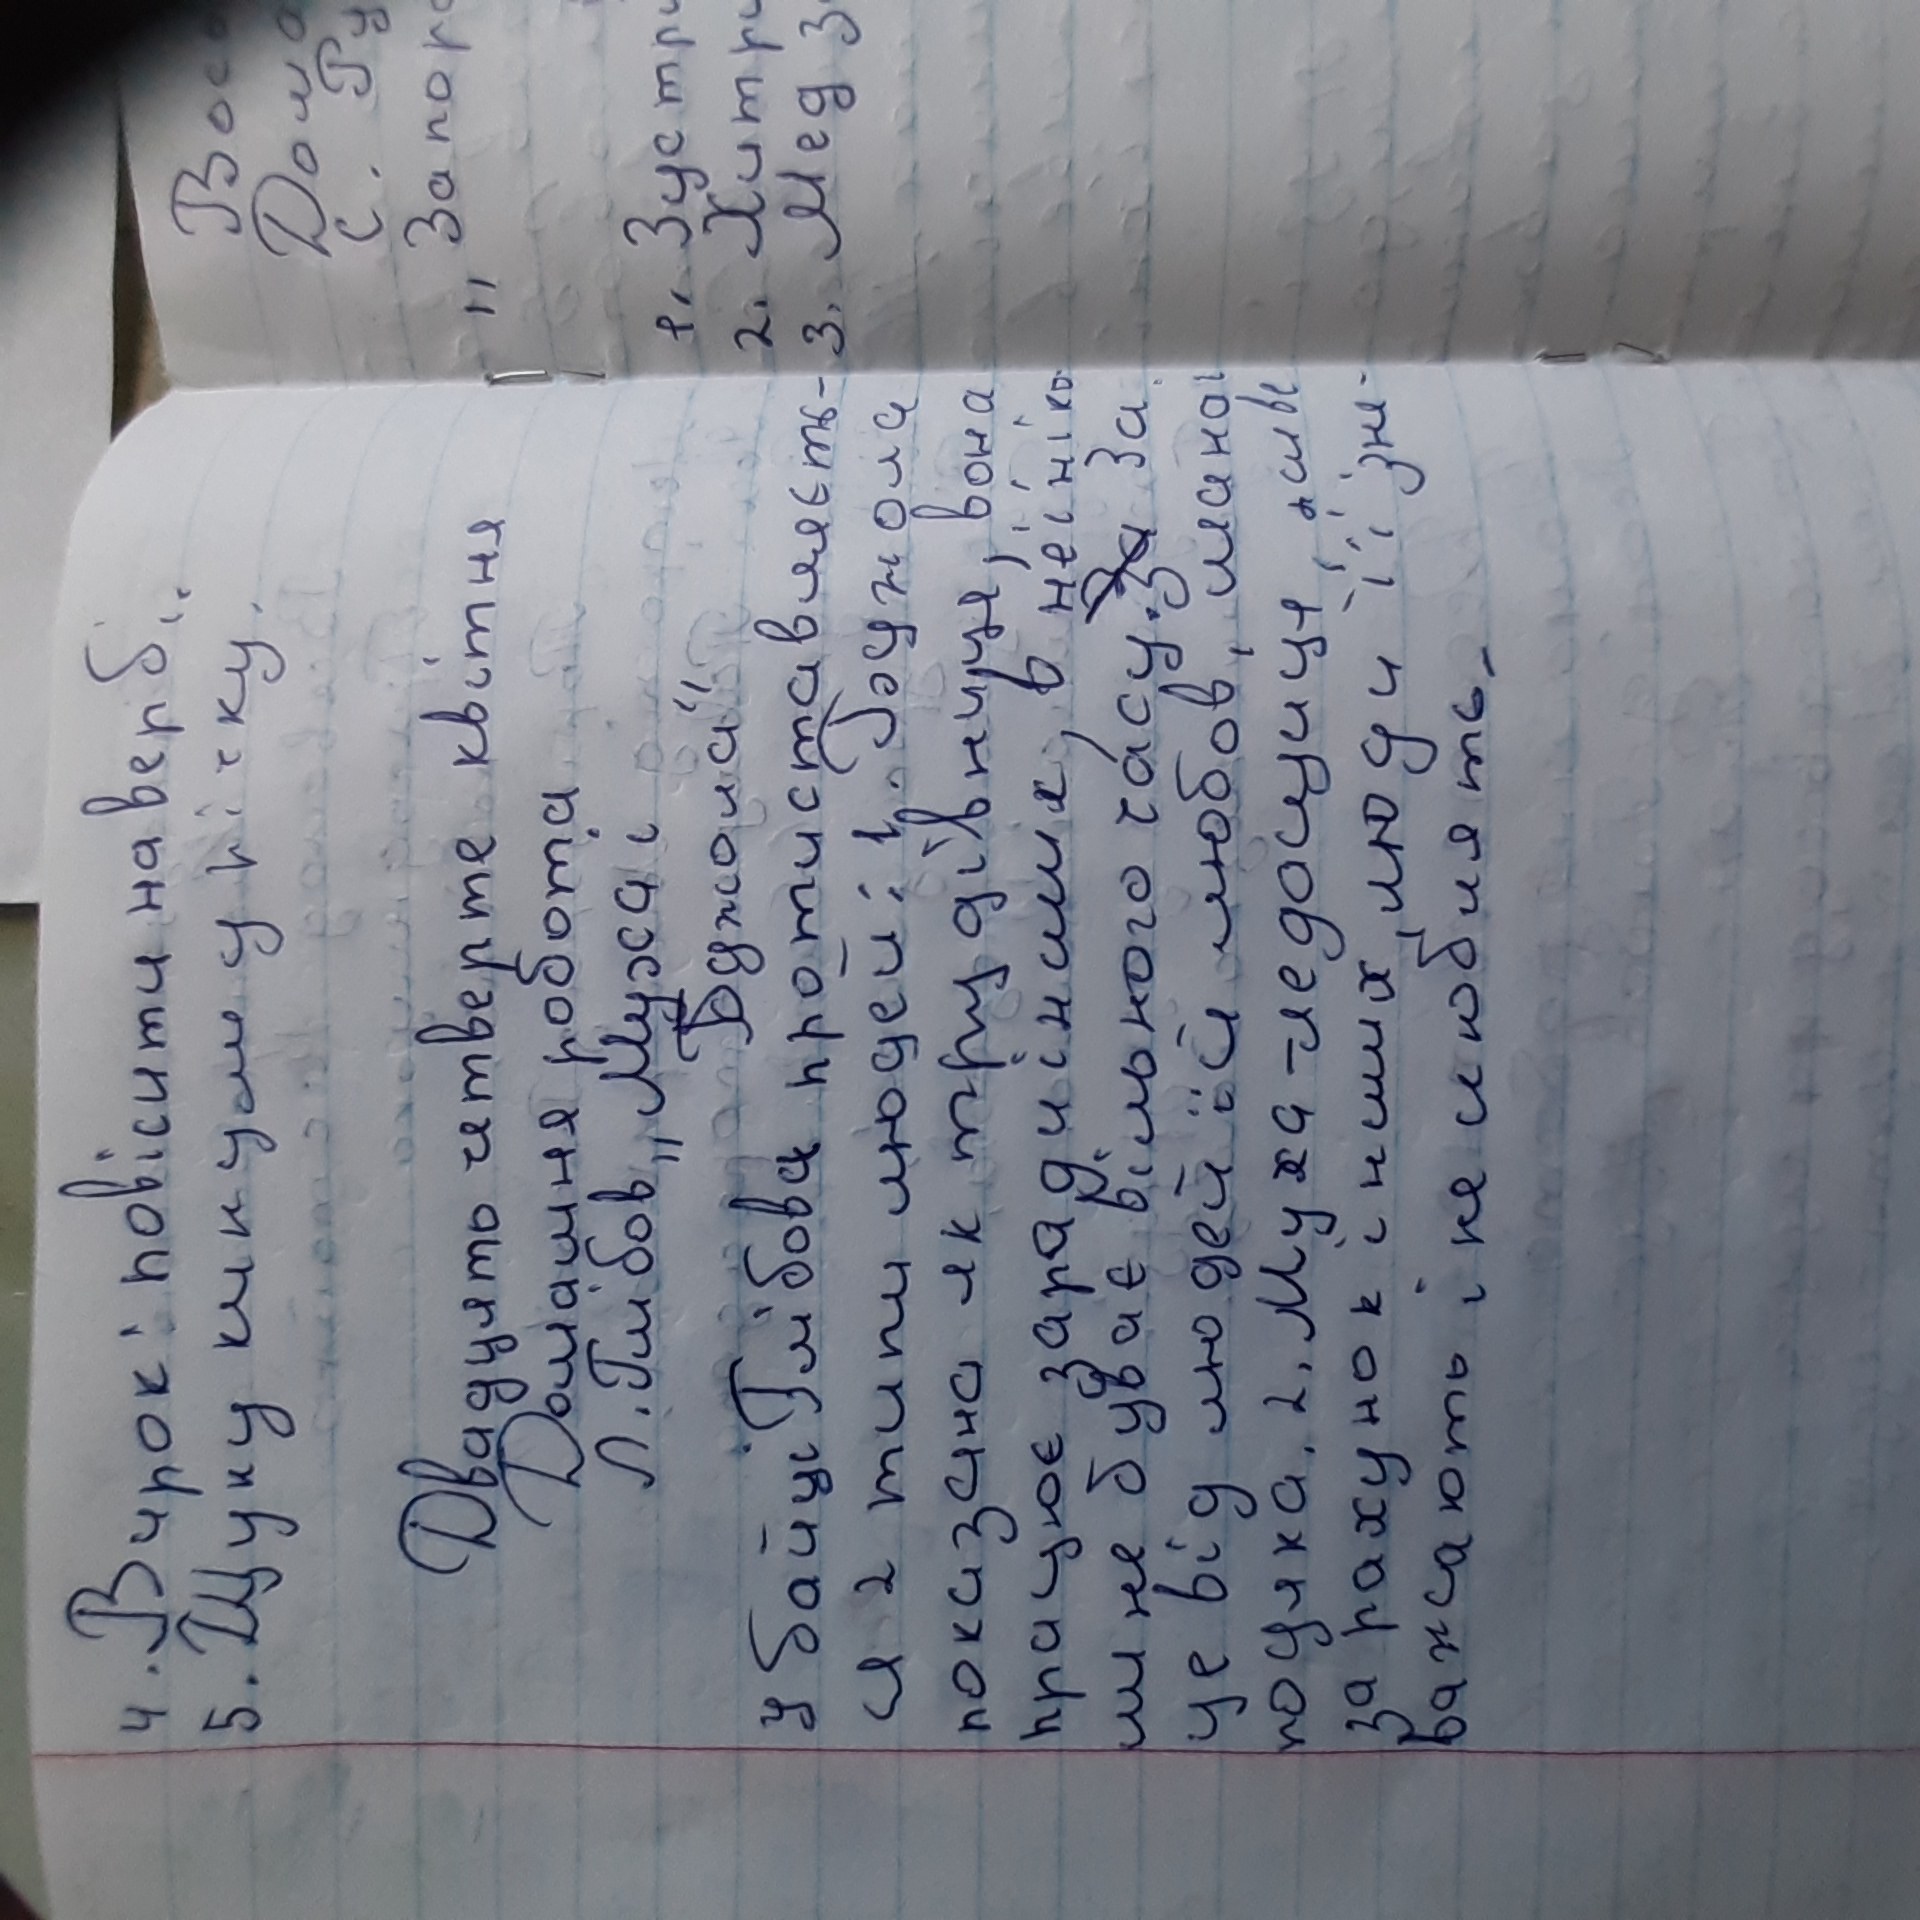 4. Вирок: повісити на верб.
5. Щуку кинули у річку.
Двадцять четверте квітня
Домашня робота
Л. Глібов „Муха і
Бджола"
У байці Глібова протиставляєть-
ся 2 типи людей: 1. Бджола
показана як трудівниця, вона
працює заради інших, в неї ніко
ли не буває вільного часу. За
це від людей їй любов, шана і
подяка. 2. Муха-ледащиця, живе
за рахунок інших, люди її зне-
важають і не люблять.
Восе
Дома
С. Ру
" Запоро
1. Зустрі
2. Хитри
3. Мед з